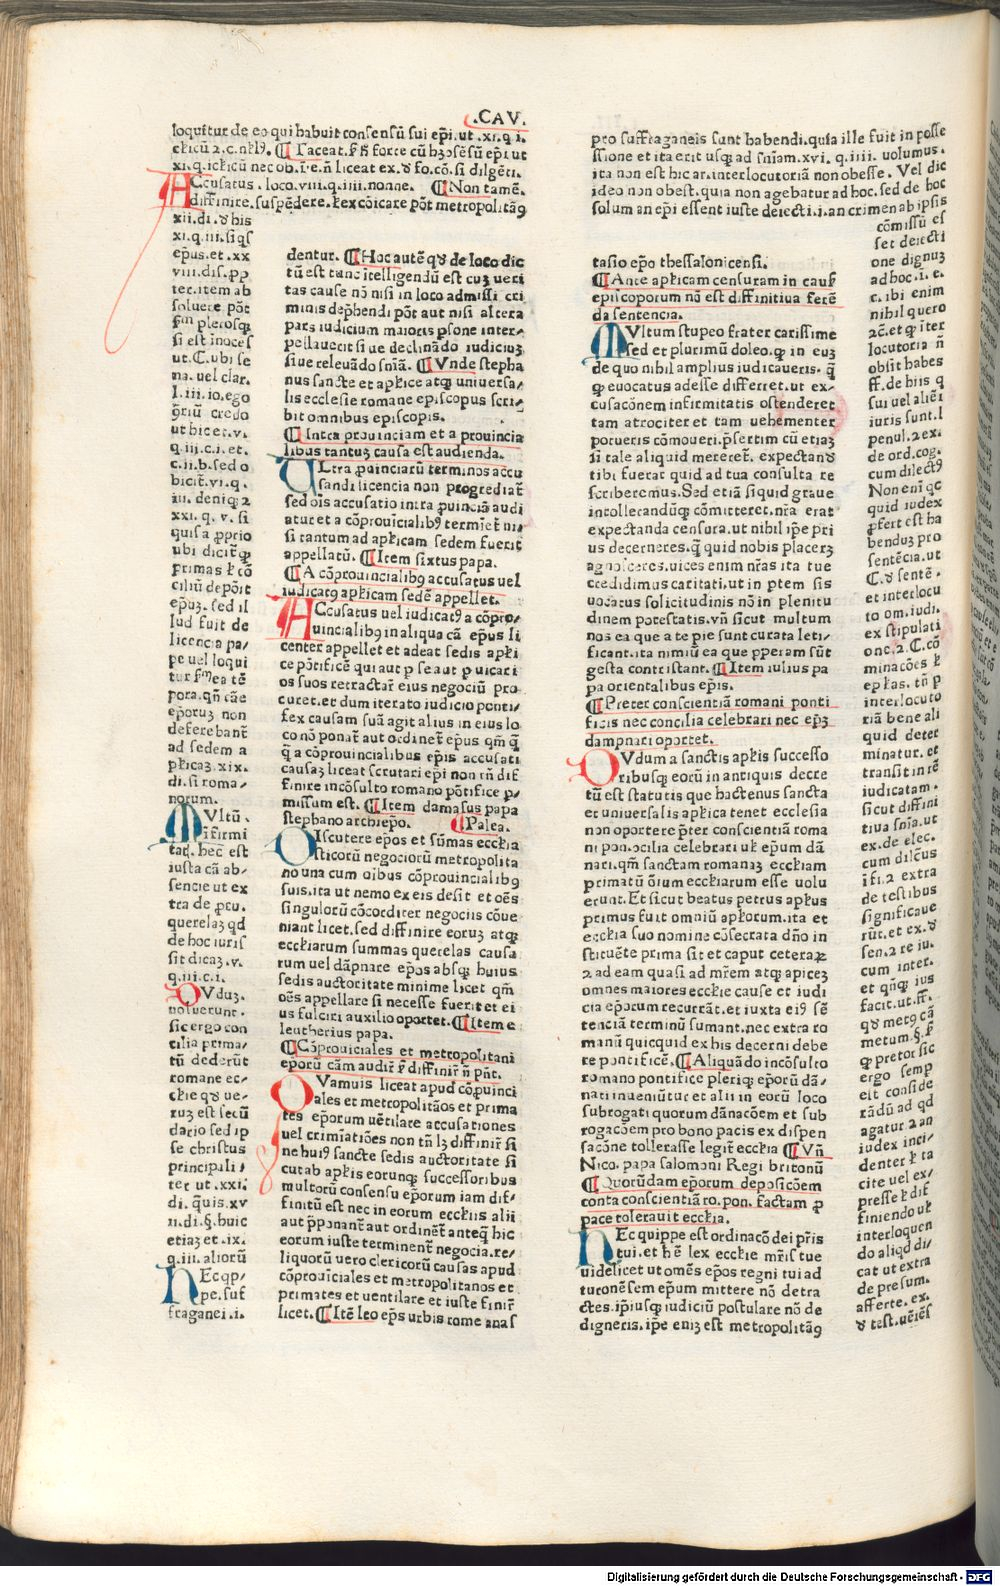 .CAV.
loquitur de eo qui habuit consensū sui epī. ut .xi. q. i.
A Ccusatus . loco. viii. q. iiii. nonne. ¶ Non tamē.
diffinire. suspēdere. ł excōicare pōt metropolitāꝰ
xii. di. ꝺ his
xi. q. iii. si qſ
epūs. et .xx
viii. dis. pp
ter. item ab
soluere pōt
si est inoceſ
ut. C. ubi se
na. uel clar.
l. iii. io. ego
credo
ut hic et. v.
q. iii. c. i. et.
c. ii. b. sed o
xxi. q. v. si
quis a ꝓprio
primas ł cō
ciliū depōit
epūꝫ. sed il
lud fuit de
licencia pa/
pe uel loqui
pora. qn̄ cāe
epōruꝫ non
ad sedem a
plicaꝫ. xix.
di. si roma/
norum.
M Vltū .
īfirmi
tat̄. hec est
iusta cā ab/
sencie ut ex
tra de ꝓcu.
querelaꝫ qd
de hoc iuris
sit dicaꝫ .v.
q. iii. c. i.
O Vduꝫ.
uoluerunt.
sic ergo con
cilia prima/
tū dederūt
romane ec/
ruꝫ est secū
dario sed ip
se christus
principali/
ter ut .xxi.
di. q̄uis. xv
ii. di. §. huic
etiaꝫ et .ix.
q. iii. aliorū
N Ec qp/
pe. suf
fraganei .i.
dentur. ¶ Hoc autē qꝺ de loco dic
tū est tunc itelligendū est cuꝫ ueri
tas cause nō nisi in loco admissi cri
minis dep̄hendi pōt aut nisi altera
pars iudicium maioris ꝑsone inter/
pellauerit siue declinādo iudiciuꝫ
siue releuādo sn̄iā. ¶ Vnde stepha
nus sancte et ap̄lice atqꝫ uniuersa/
lis ecclesie romane episcopus scri/
bit omnibus episcopis.
¶ Intra prouinciam et a prouincia
libus tantuꝫ causa est audienda.
V Ltra ꝓuinciarū terminos accu
sandi licencia non progrediat̄
sed oīs accusatio intra ꝓuinciā audi
atur et a cōprouicialibꝰ termīet̄ ni/
si tantum ad ap̄licam sedem fuerit
appellatū. ¶ Item sixtus papa.
¶ A cōprouincialibꝰ accusatus uel
iudicatꝰ ap̄licam sedē appellet.
A Ccusatus uel iudicatꝰ a cōpro/
uincialibꝰ in aliqua cā epūs li
center appellet et adeat sedis ap̄li
ce pōtificē qui aut ꝑ se aut ꝑ uicari
os suos retractar̄ eius negociū pro
curet. et dum iterato iudicio ponti/
fex causam suā agit alius in eius lo
co nō ponat̄ aut ordinet̄ epūs qm̄ q̄
q̄ a cōprouincialibus epīs accusati
causaꝫ liceat scrutari epī non tn̄ dif
finire incōsulto romano pōtifice ꝑ/
missum est. ¶ Item damasus papa
stephano archiepō. ¶ Palea.
D Iscutere epōs et sūmas eccłia
sticorū negociorū metropolita
no una cum oībus cōprouincialibꝰ
suis. ita ut nemo ex eis desit et oēs
singulorū cōcorditer negociis cōue
niant licet. sed diffinire eoruꝫ atqꝫ
eccłiarum summas querelas causa
rum uel dāpnare epōs absqꝫ huius
sedis auctoritate minime licet qm̄
oēs appellare si necesse fuerit et ei/
us fulciri auxilio oportet. ¶ Item e
leutherius papa.
¶ Cōprouiciales et metropolitani
epōrū cām audir̄ ꝫ diffinir̄ n̄ pn̄t.
Q Vamuis liceat apud cōꝓuinci
ales et metropolitāos et prima
tes epōrum uētilare accusationes
uel crimīatiōes non tn̄ lꝫ diffinir̄ si
ne huiꝰ sancte sedis auctoritate si
cut ab ap̄lis eorunqꝫ successoribus
multorū consensu epōrum iam dif/
finitū est nec in eorum eccłiis alii
aut p̄ponant̄ aut ordinēt̄ anteq̄ hic
eorum iuste terminent̄ negocia. re/
liquorū uero clericorū causas apud
cōprouiciales et metropolitanos et
primates et uentilare et iuste finir̄
licet. ¶ Itē leo epūs urbis rome anaſ
pro suffraganeis sunt habendi. quia ille fuit in posse
ssione et ita erit usqꝫ ad sn̄iam. xvi. q. iiii. uolumus.
ita non est hic ar. interlocutoriā non obesse . Vel dic
ideo non obest. quia non agebatur ad hoc. sed de hoc
solum an epī essent iuste deiecti. i. an crimen ab ipsis
tasio epō thessalonicensi.
¶ Ante ap̄licam censuram in caus̄
episcoporum nō est diffinitiua ferē
da sentencia.
M Vltum stupeo frater carissime
sed et plurimū doleo. ꝙ in euꝫ
de quo nihil amplius iudicaueris. q̄
ꝙ euocatus adesse differret. ut ex/
cusacōnem infirmitatis ostenderet
tam atrociter et tam uehementer
potueris cōmoueri. p̄sertim cū etiaꝫ
si tale aliquid mereret̄. expectandꝰ
tibi fuerat quid ad tua consulta re
scriberemus. Sed etiā si quid graue
intollerandūqꝫ cōmitteret. nr̄a erat
expectanda censura. ut nihil ip̄e pri
us decerneres. q̄ quid nobis placerꝫ
agnosceres. uices enim nr̄as ita tue
credidimus caritati. ut in ptem sis
uocatus solicitudinis nō in plenitu
dinem potestatis. vn̄ sicut multum
nos ea que a te pie sunt curata leti/
ficant. ita nimiū ea que pperam sūt
gesta contristant. ¶ Item iulius pa
pa orientalibus epīs.
¶ Preter conscientiā romani ponti
ficis nec concilia celebrari nec epūꝫ
dampnari oportet.
D Vdum a sanctis ap̄lis successo
ribusqꝫ eorū in antiquis decre
tū est statutis que hactenus sancta
et uniuersalis ap̄lica tenet ecclesia
non oportere p̄ter conscientiā roma
ni pon. ocilia celebrari uł epūm dā
nari. qm̄ sanctam romanaꝫ eccłiam
primatū ōium eccłiarum esse uolu
erunt. Et sicut beatus petrus ap̄lus
primus fuit omniū ap̄lorum. ita et
eccłia suo nomine cōsecrata dn̄o in
stituēte prima sit et caput ceteraꝝ
ꝛ ad eam quasi ad mr̄em atqꝫ apiceꝫ
omnes maiores eccłie cause et iudi
cia epōrum recurrāt. et iuxta eiꝰ sē
tenciā terminū sumant. nec extra ro
manū quicquid ex his decerni debe
re pontificē. ¶ Aliquādo incōsulto
romano pontifice pleriqꝫ epōrū dā/
nati inueniūtur et alii in eorū loco
subrogati quorum dānacōem et sub
rogacōem pro bono pacis ex dispen
sacōne tollerasse legit̄ eccłia ¶ Vn̄
Nico. papa salomoni Regi britonū
¶ Quorūdam epōrum deposicōem
conta conscientiā ro. pon. factam ꝓ
pace tolerauit eccłia.
N Ec quippe est ordinacō dei pr̄is
tui. et hē lex eccłie mr̄is tue
uidelicet ut omēs epōs regni tui ad
turonēsem epūm mittere nō detra
ctes. ip̄iusqꝫ iudiciū postulare nō de
digneris. ip̄e eniꝫ est metropolitāꝰ
cōmissū eſ
set deiecti
one dignuꝫ
ad hoc. i. e.
c. ibi enim
nihil quero
locutoria n̄
obsit habes
ff. de hiis q
sui uel alieī
iuris sunt. l
penul. ꝛ exī.
de ord. cog.
cum dilectꝰ
Non enī qc
quid iudex
ꝓfert est ha
benduꝫ pro
sentēcia. ut
C. ꝺ sentē .
et interlocu
to om. iudi.
ex stipulati
one. ꝛ. C. cō
minacōes ł
interlocuto
riā bene ali
quid deter
minatur. et
transit in rē
iudicatam.
sicut diffini
tiua sn̄ia. ut
ex. de elec.
cum dilcūs
īfī. ꝛ extra
de testibus
significaue
rūt. et ex. ꝺ
sen. ꝛ re iu.
cum inter.
et qn̄qꝫ ius
facit. ut. ff.
qꝺ metꝰ cā
metum. §. ł
ꝙ pretor sic
ergo semꝑ
est conside
rādū ad qd
agatur. ꝛ an
iudex inci/
denter ł ta
cite uel ex/
presse ł dif
finiendo uł
interloquen
do aliqd di/
cat ut extra
de presum.
afferte. ex.
ꝺ test. uēiēs
Digitalisierung gefördert durch die Deutsche Forschungsgemeinschaft - DFG